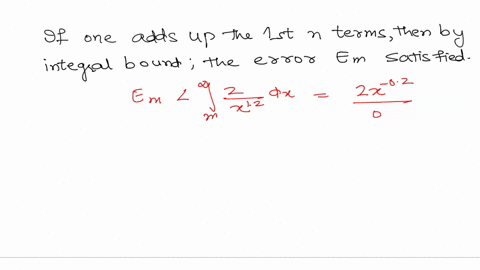 If one adds up the 1st n terms, then by
integral bound; the error Em satisfied.
Em < ∫_m^∞ 2/x^1.2 dx = 2x^-0.2/0